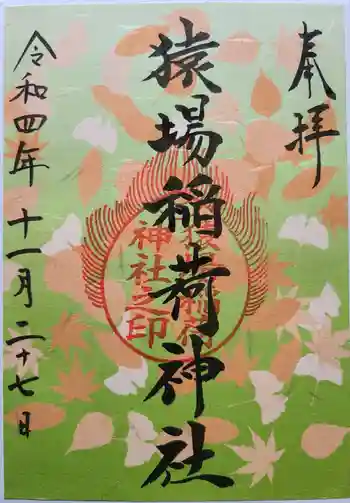 奉拝
猿場稲荷神社
令和四年十一月二十七日
猿場稲荷
神社之印